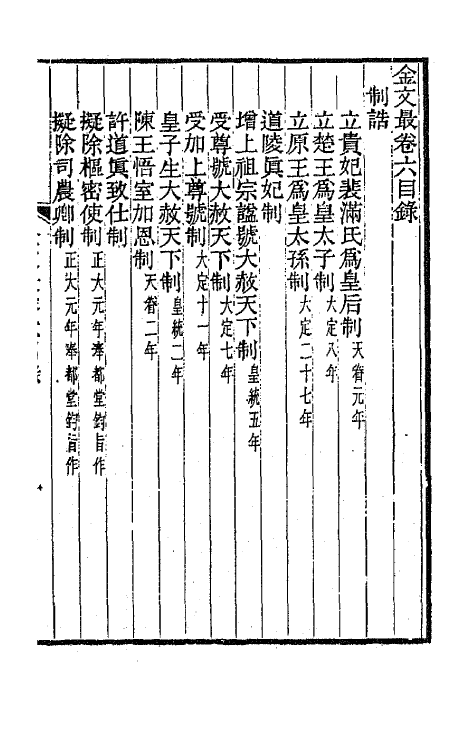 金文最卷六目錄
制誥
立貴妃裴滿氏爲皇后制天眷元年
立楚王爲皇太子制大定八年
立原王爲皇太孫制大定二十七年
道陵眞妃制
增上祖宗諡號大赦天下制皇統五年
受尊號大赦天下制大定七年
受加上尊號制大定十一年
皇子生大赦天下制皇統二年
陳王悟室加恩制天眷二年
許道眞致仕制
擬除樞密使制正大元年奉都堂鈞旨作
擬除司農卿制正大元年奉都堂鈞旨作